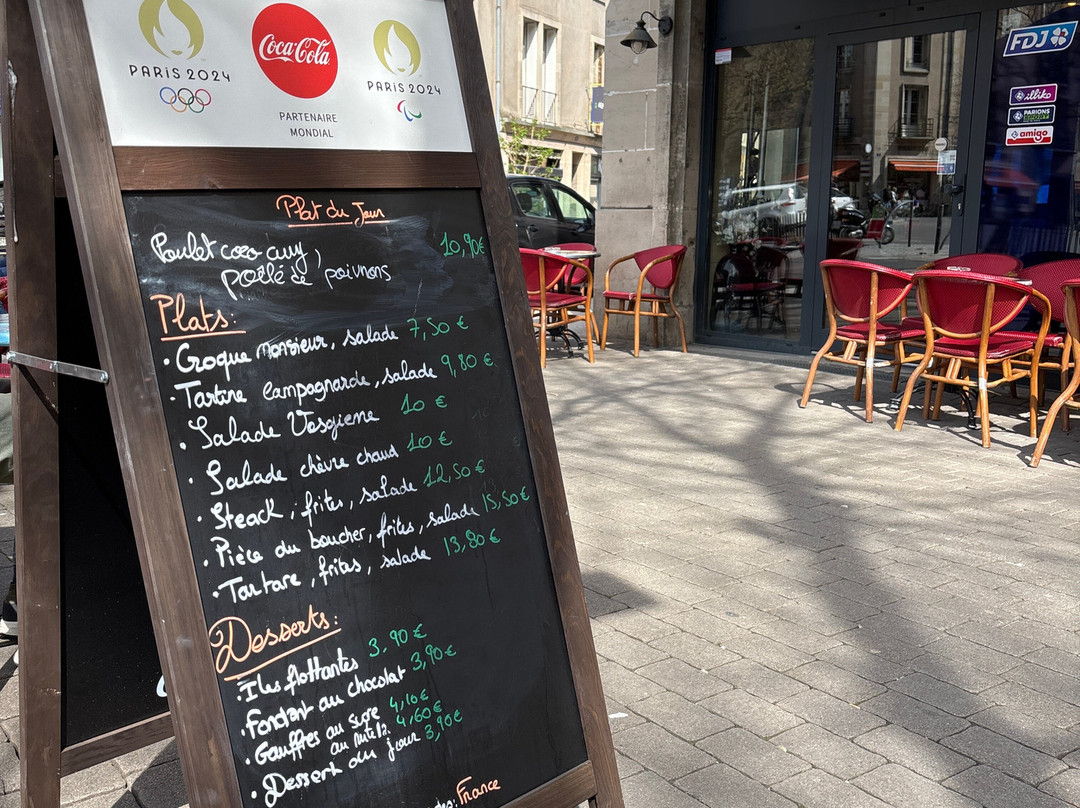 PARIS 2024
Coca-Cola
PARTENAIRE
MONDIAL
PARIS 2024
Plat du Jour
Poulet coco curry, 10,90€
poêlé de poivrons
Plats:
• Croque Monsieur, salade 7,50 €
• Tartine campagnarde, salade 9,80 €
• Salade Vosgienne 10 €
• Salade chèvre chaud 10 €
• Steack, frites, salade 12,50 €
• Pièce du boucher, frites, salade 15,50€
• Tartare, frites, salade 13,80 €
Desserts:
• Iles flottantes 3.90 €
• Fondant au chocolat 3,90€
• Gauffres au sucre 4,10€
au nutella 4,60€
• Dessert du jour 3,90€
France
FDJ
illiko
PARIONS
SPORT
amigo